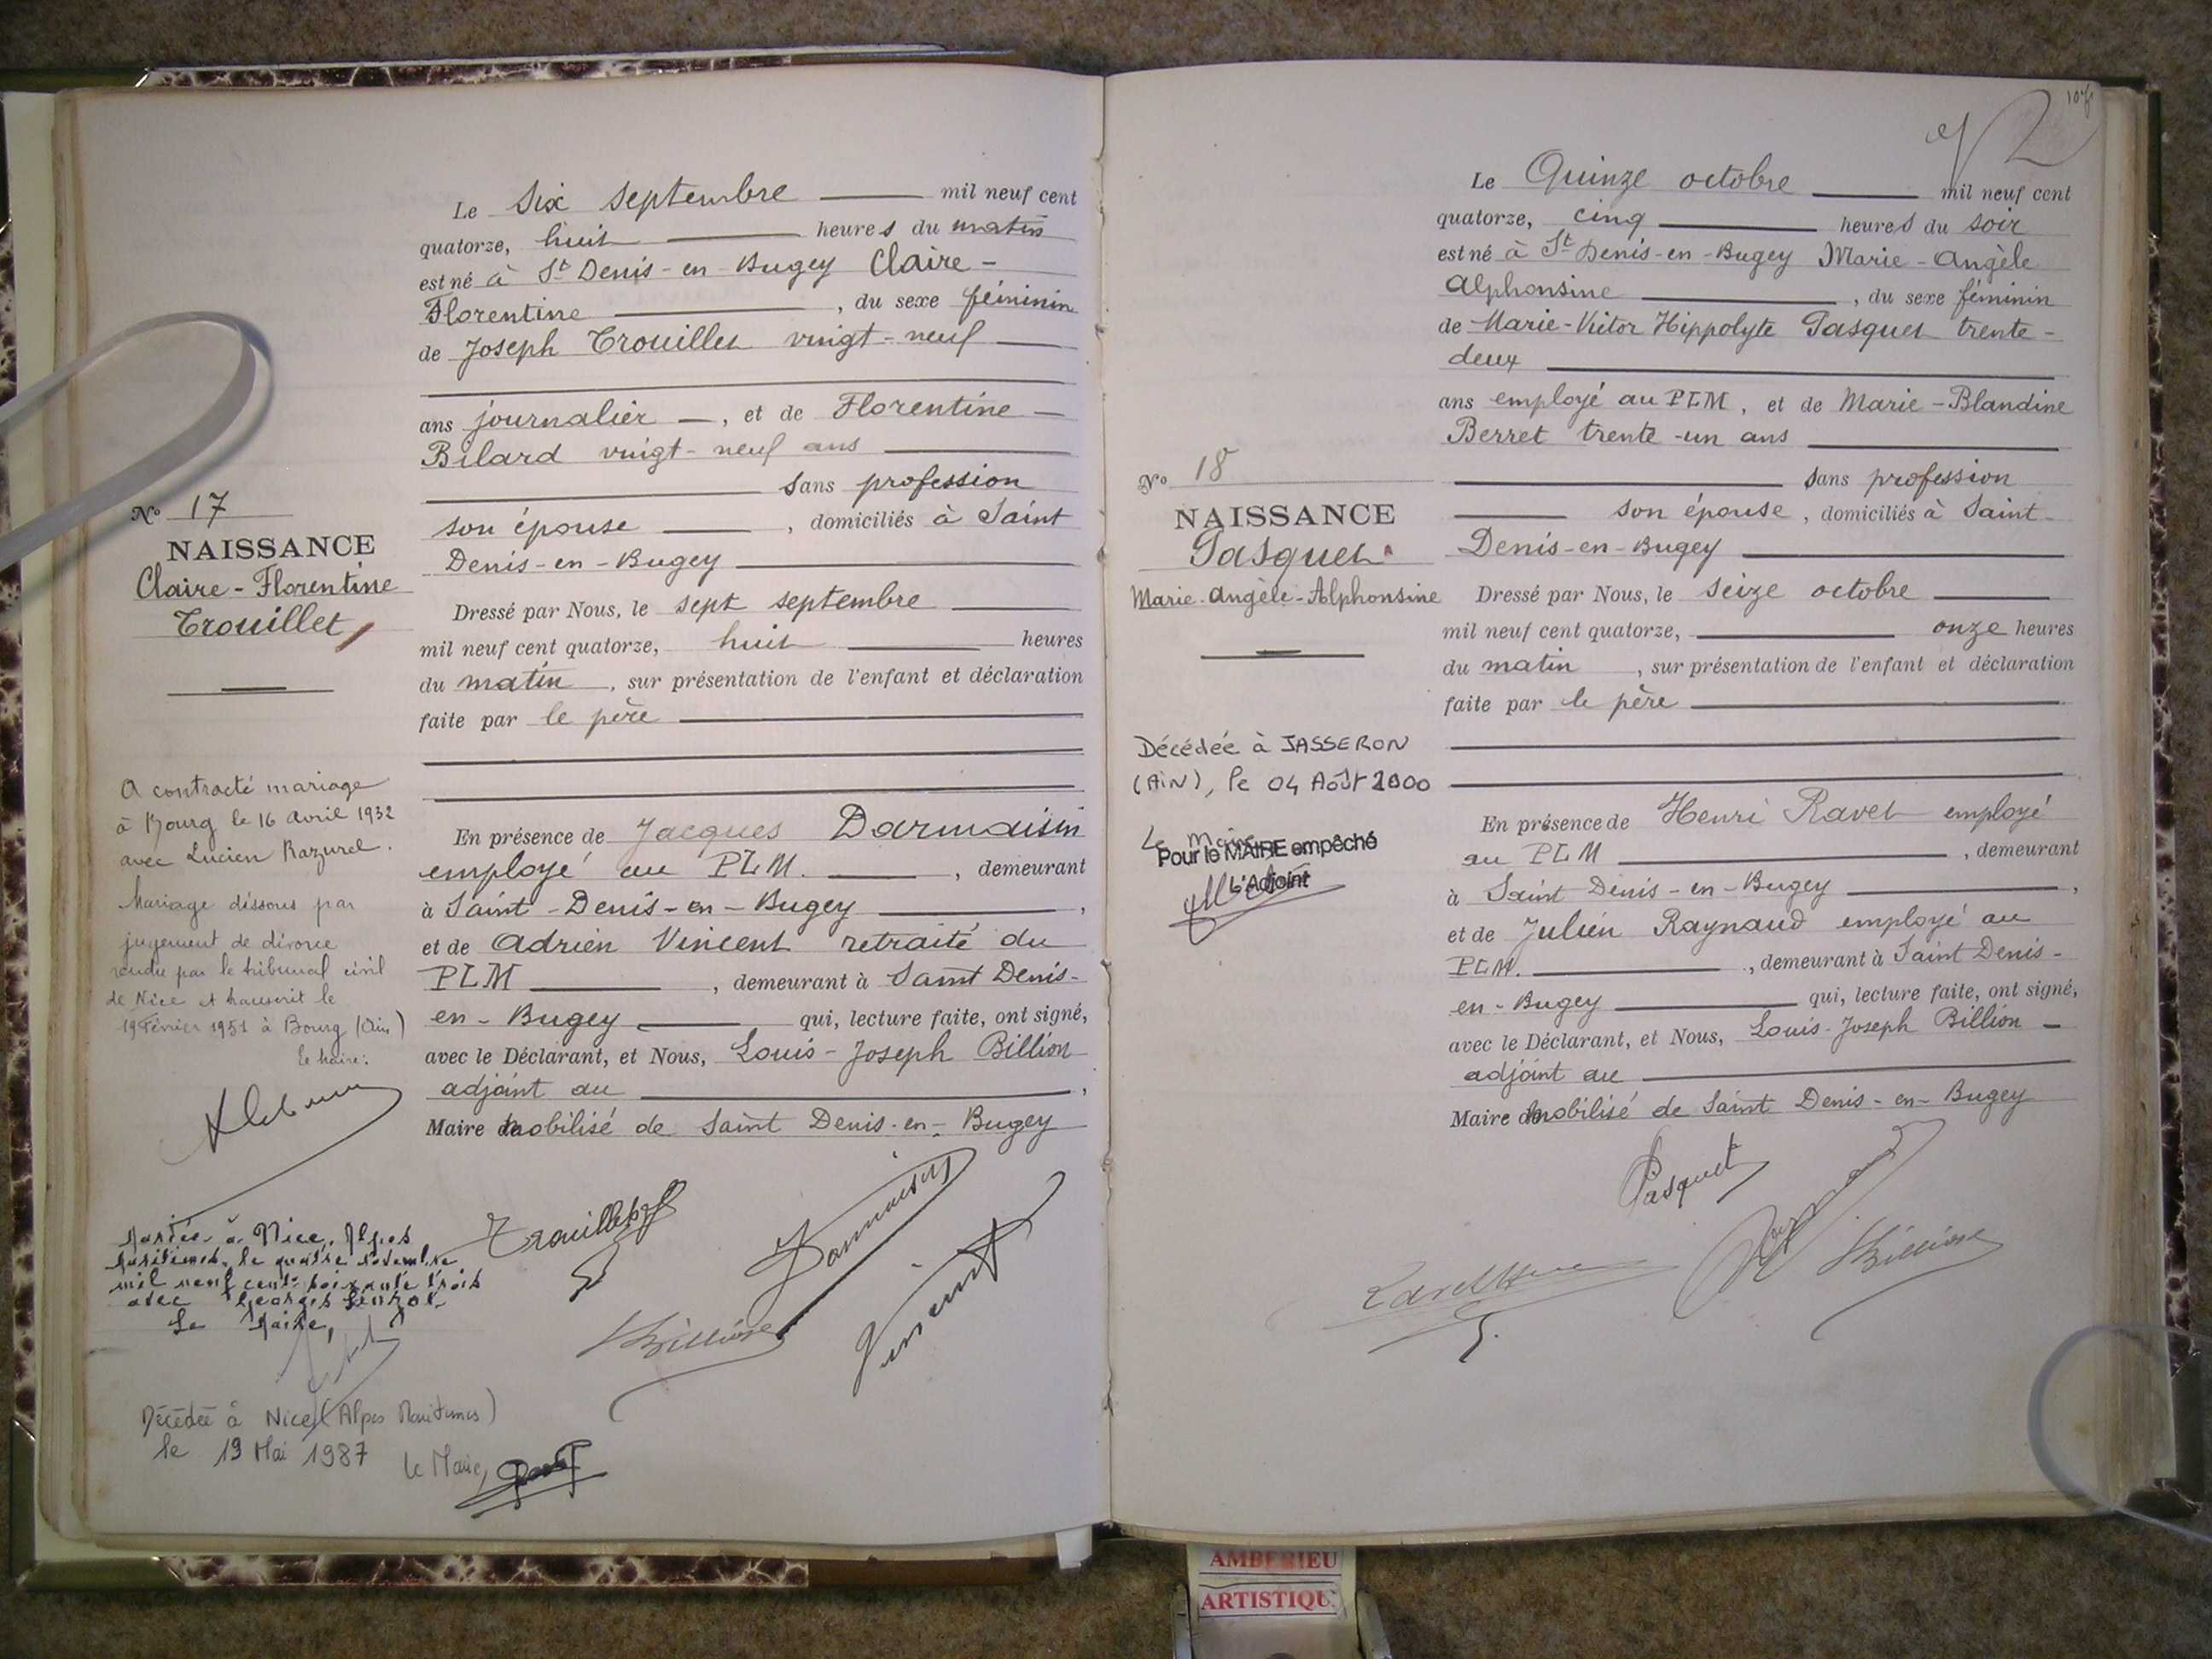 Le Six Septembre mil neuf cent
quatorze, huit heures du matin
est né à St Denis-en-Bugey Claire-
Florentine , du sexe féminin
de Joseph Trouillet vingt-neuf
ans journalier , et de Florentine
Bilard vingt-neuf ans
sans profession
son épouse , domiciliés à Saint
Denis-en-Bugey
Dressé par Nous, le sept septembre
mil neuf cent quatorze, huit heures
du matin , sur présentation de l'enfant et déclaration
faite par le père
En présence de Jacques Darmaisin
employé au PLM. , demeurant
à Saint-Denis-en-Bugey ,
et de Adrien Vincent retraité du
PLM , demeurant à Saint Denis-
en-Bugey qui, lecture faite, ont signé,
avec le Déclarant, et Nous, Louis-Joseph Billion
adjoint au ,
Maire mobilisé de Saint Denis-en-Bugey
Trouillet
Darmaisin
Billion
Vincent
No 17
NAISSANCE
Claire-Florentine
Trouillet
A contracté mariage
à Bourg le 16 Avril 1932
avec Lucien Razurel.
Mariage dissous par
jugement de divorce
rendu par le tribunal civil
de Nice et transcrit le
19 Février 1951 à Bourg (Ain)
le Maire:
Mariée à Nice, Alpes
Maritimes, le quatre novembre
mil neuf cent soixante trois
avec Georges
Le Maire,
Décédée à Nice (Alpes Maritimes)
le 19 Mai 1987 Le Maire,
2
Le Quinze octobre mil neuf cent
quatorze, cinq heures du soir
est né à St Denis-en-Bugey Marie-Angèle
Alphonsine , du sexe féminin
de Marie-Victor Hippolyte Pasquet trente-
deux
ans employé au PLM , et de Marie-Blandine
Berret trente-un ans
sans profession
son épouse , domiciliés à Saint-
Denis-en-Bugey
Dressé par Nous, le seize octobre
mil neuf cent quatorze, onze heures
du matin , sur présentation de l'enfant et déclaration
faite par le père
En présence de Henri Ravet employé
au PLM , demeurant
à Saint Denis-en-Bugey ,
et de Julien Raynaud employé au
PLM. , demeurant à Saint Denis-
en-Bugey qui, lecture faite, ont signé,
avec le Déclarant, et Nous, Louis-Joseph Billion
adjoint au
Maire mobilisé de Saint Denis-en-Bugey
Pasquet
Billion
No 18
NAISSANCE
Pasquet
Marie-Angèle-Alphonsine
Décédée à JASSERON
(AiN), le 04 Août 2000
Le Maire
Pour le MAIRE empêché
L'Adjoint
AMBERIEU
ARTISTIQU